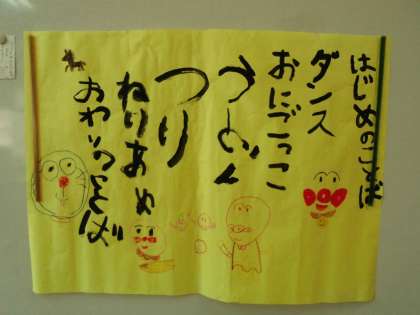 はじめのことば
ダンス
おにごっこ
うどん
つり
ねりあめ
おわりのことば